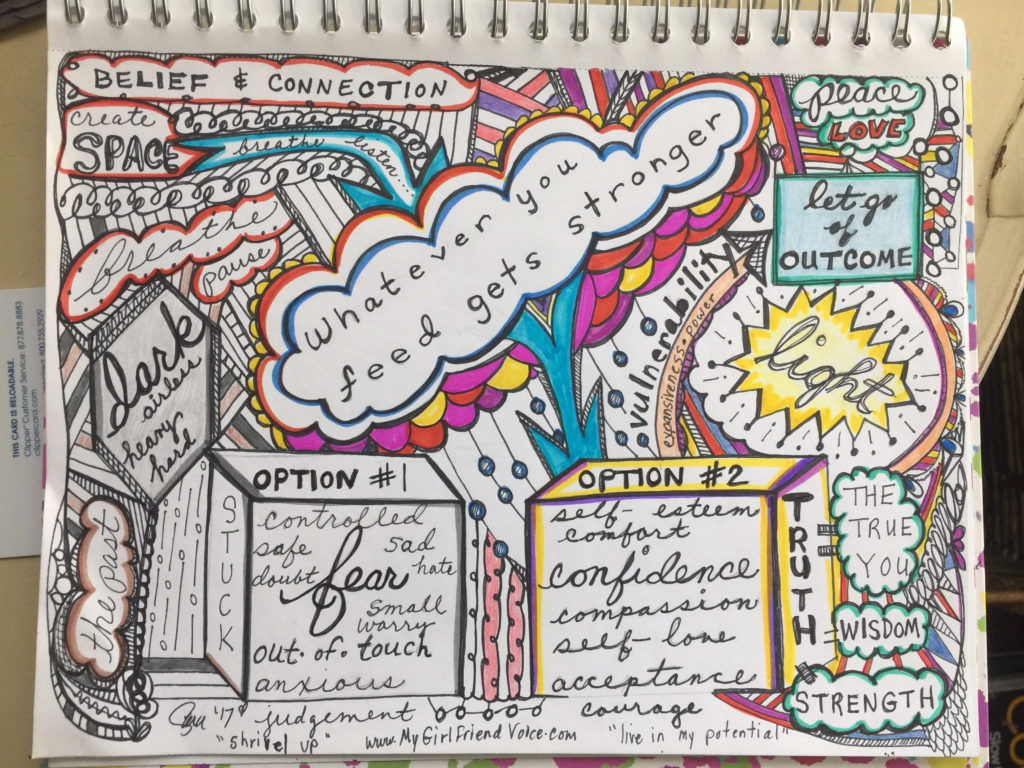 BELIEF & CONNECTION
create
SPACE
breathe listen...
breathe
pause
Whatever you
feed gets stronger
peace
LOVE
let go
of
OUTCOME
vulnerability
expansiveness • power
light
dark
airless
heavy
hard
the past
OPTION #1
STUCK
controlled
safe sad
doubt fear hate
small
worry
out • of • touch
anxious
judgement
"shrivel up"
OPTION #2
self-esteem
comfort
confidence
compassion
self-love
acceptance
courage
"live in my potential"
TRUTH
THE
TRUE
YOU
=WISDOM
STRENGTH
'17
www.MyGirlfriendVoice.com
THIS CARD IS RELOADABLE.
Clipper Customer Service: 877.878.8883
clippercard.com